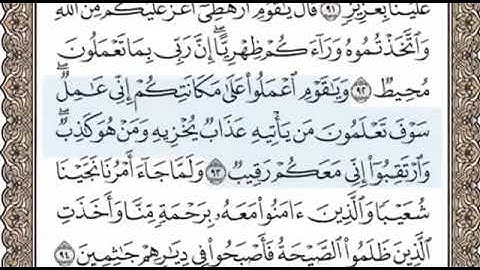 عَلَيْنَا بِعَزِيزٍ ٩١ قَالَ يَٰقَوْمِ أَرَهْطِىٓ أَعَزُّ عَلَيْكُم مِّنَ ٱللَّهِ
وَٱتَّخَذْتُمُوهُ وَرَآءَكُمْ ظِهْرِيًّا ۖ إِنَّ رَبِّى بِمَا تَعْمَلُونَ
مُحِيطٌ ٩٢ وَيَٰقَوْمِ ٱعْمَلُوا۟ عَلَىٰ مَكَانَتِكُمْ إِنِّى عَٰمِلٌ ۖ
سَوْفَ تَعْلَمُونَ مَن يَأْتِيهِ عَذَابٌ يُخْزِيهِ وَمَنْ هُوَ كَٰذِبٌ ۖ
وَٱرْتَقِبُوٓا۟ إِنِّى مَعَكُمْ رَقِيبٌ ٩٣ وَلَمَّا جَآءَ أَمْرُنَا نَجَّيْنَا
شُعَيْبًا وَٱلَّذِينَ ءَامَنُوا۟ مَعَهُۥ بِرَحْمَةٍ مِّنَّا وَأَخَذَتِ
ٱلَّذِينَ ظَلَمُوا۟ ٱلصَّيْحَةُ فَأَصْبَحُوا۟ فِى دِيَٰرِهِمْ جَٰثِمِينَ ٩٤